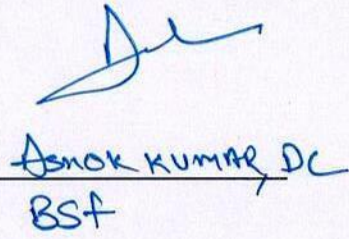 ASHOK KUMAR, DC
BSf